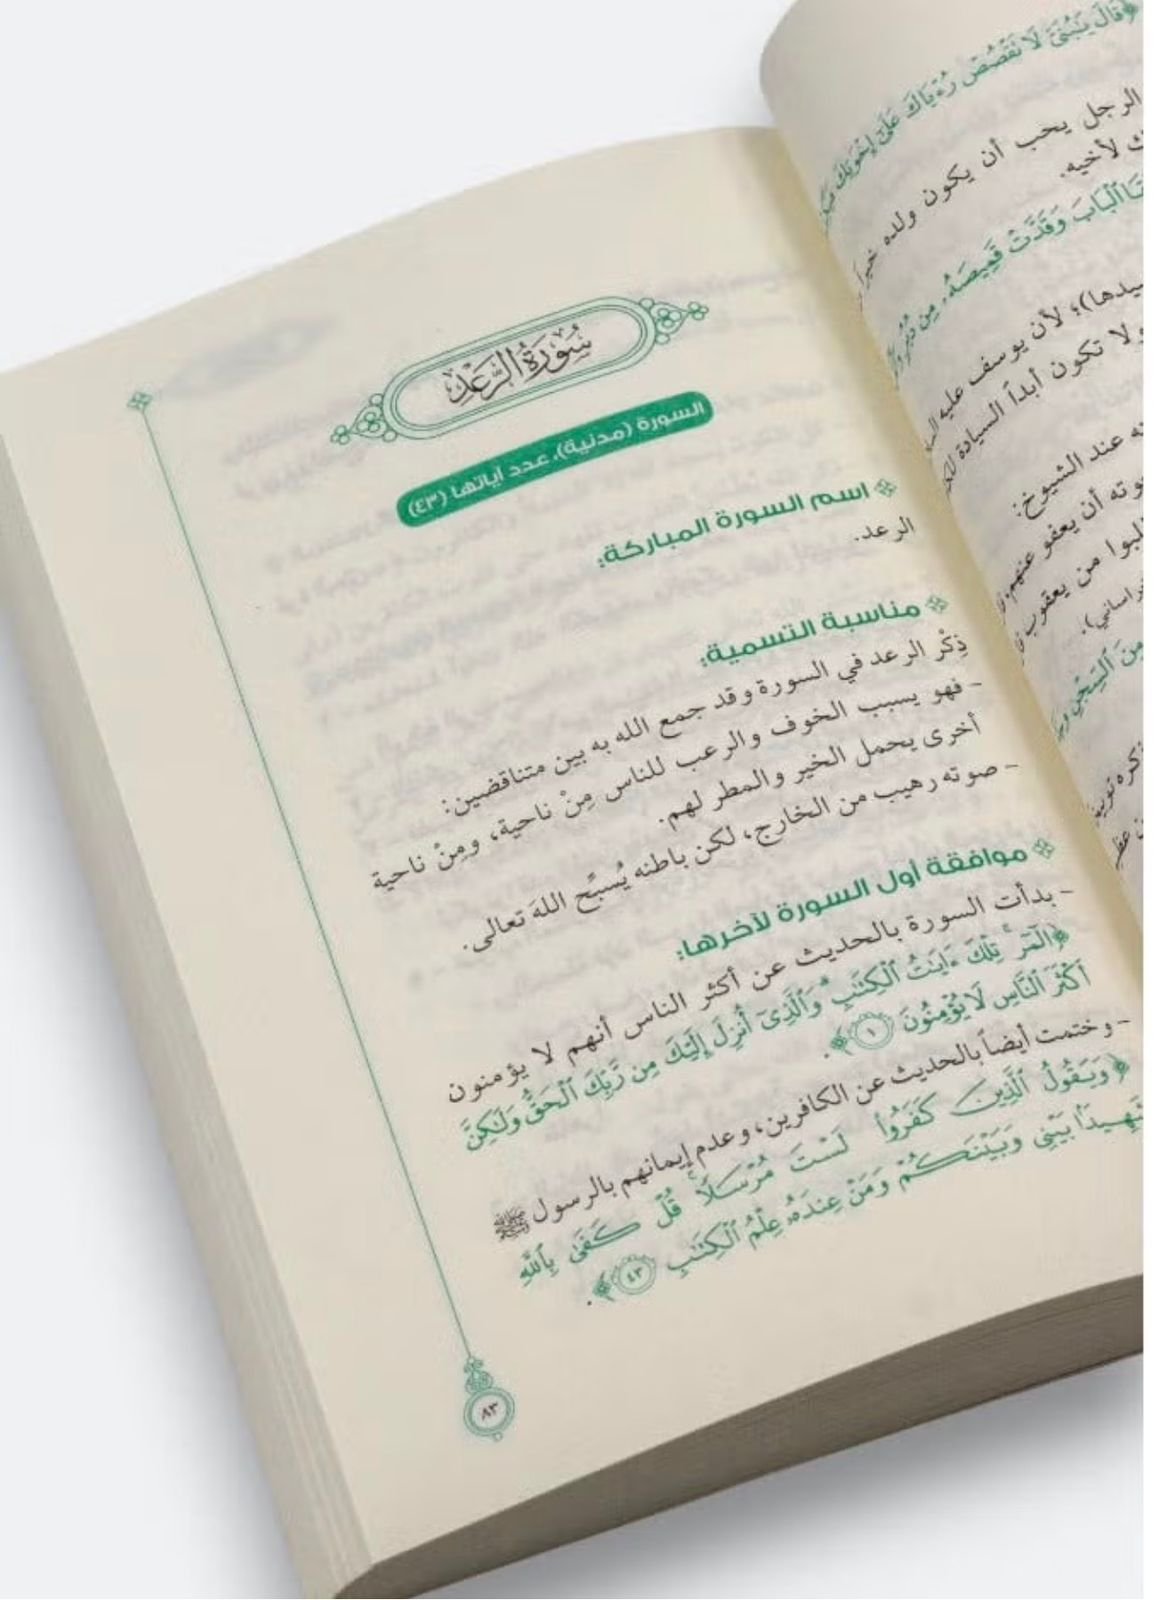 ﴿قَالَ يَٰبُنَىَّ لَا تَقْصُصْ رُءْيَاكَ عَلَىٰٓ إِخْوَتِكَ
الرجل يحب أن يكون ولده خيراً
لأخيه.
ٱلْبَابَ وَقَدَّتْ قَمِيصَهُۥ مِن دُبُرٍ
لأن يوسف عليه
ولا تكون أبداً السيادة
عند الشيوخ:
أن يعفو عنهم
من يعقوب
مِنَ ٱلسِّجْنِ
سُورَةُ الرَّعْدِ
السورة (مدنية)، عدد آياتها (٤٣)
اسم السورة المباركة:
الرعد.
مناسبة التسمية:
ذِكْر الرعد في السورة وقد جمع الله به بين متناقضين:
- فهو يسبب الخوف والرعب للناس مِنْ ناحية، ومِنْ ناحية
أخرى يحمل الخير والمطر لهم.
- صوته رهيب من الخارج، لكن باطنه يُسبِّح اللهَ تعالى.
موافقة أول السورة لآخرها:
- بدأت السورة بالحديث عن أكثر الناس أنهم لا يؤمنون
﴿الٓمٓر ۚ تِلْكَ ءَايَٰتُ ٱلْكِتَٰبِ ۗ وَٱلَّذِىٓ أُنزِلَ إِلَيْكَ مِن رَّبِّكَ ٱلْحَقُّ وَلَٰكِنَّ
أَكْثَرَ ٱلنَّاسِ لَا يُؤْمِنُونَ ١﴾.
- وختمت أيضاً بالحديث عن الكافرين، وعدم إيمانهم بالرسول ﷺ
﴿وَيَقُولُ ٱلَّذِينَ كَفَرُوا۟ لَسْتَ مُرْسَلًا ۚ قُلْ كَفَىٰ بِٱللَّهِ
شَهِيدًۢا بَيْنِى وَبَيْنَكُمْ وَمَنْ عِندَهُۥ عِلْمُ ٱلْكِتَٰبِ ٤٣﴾.
٨٣